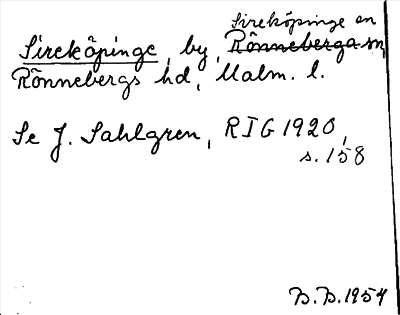 Sireköpinge sn
Sireköpinge, by, Rönneberga sn,
Rönnebergs hd, Malm. l.
Se J. Sahlgren, RIG 1920,
s. 158
B.B. 1954